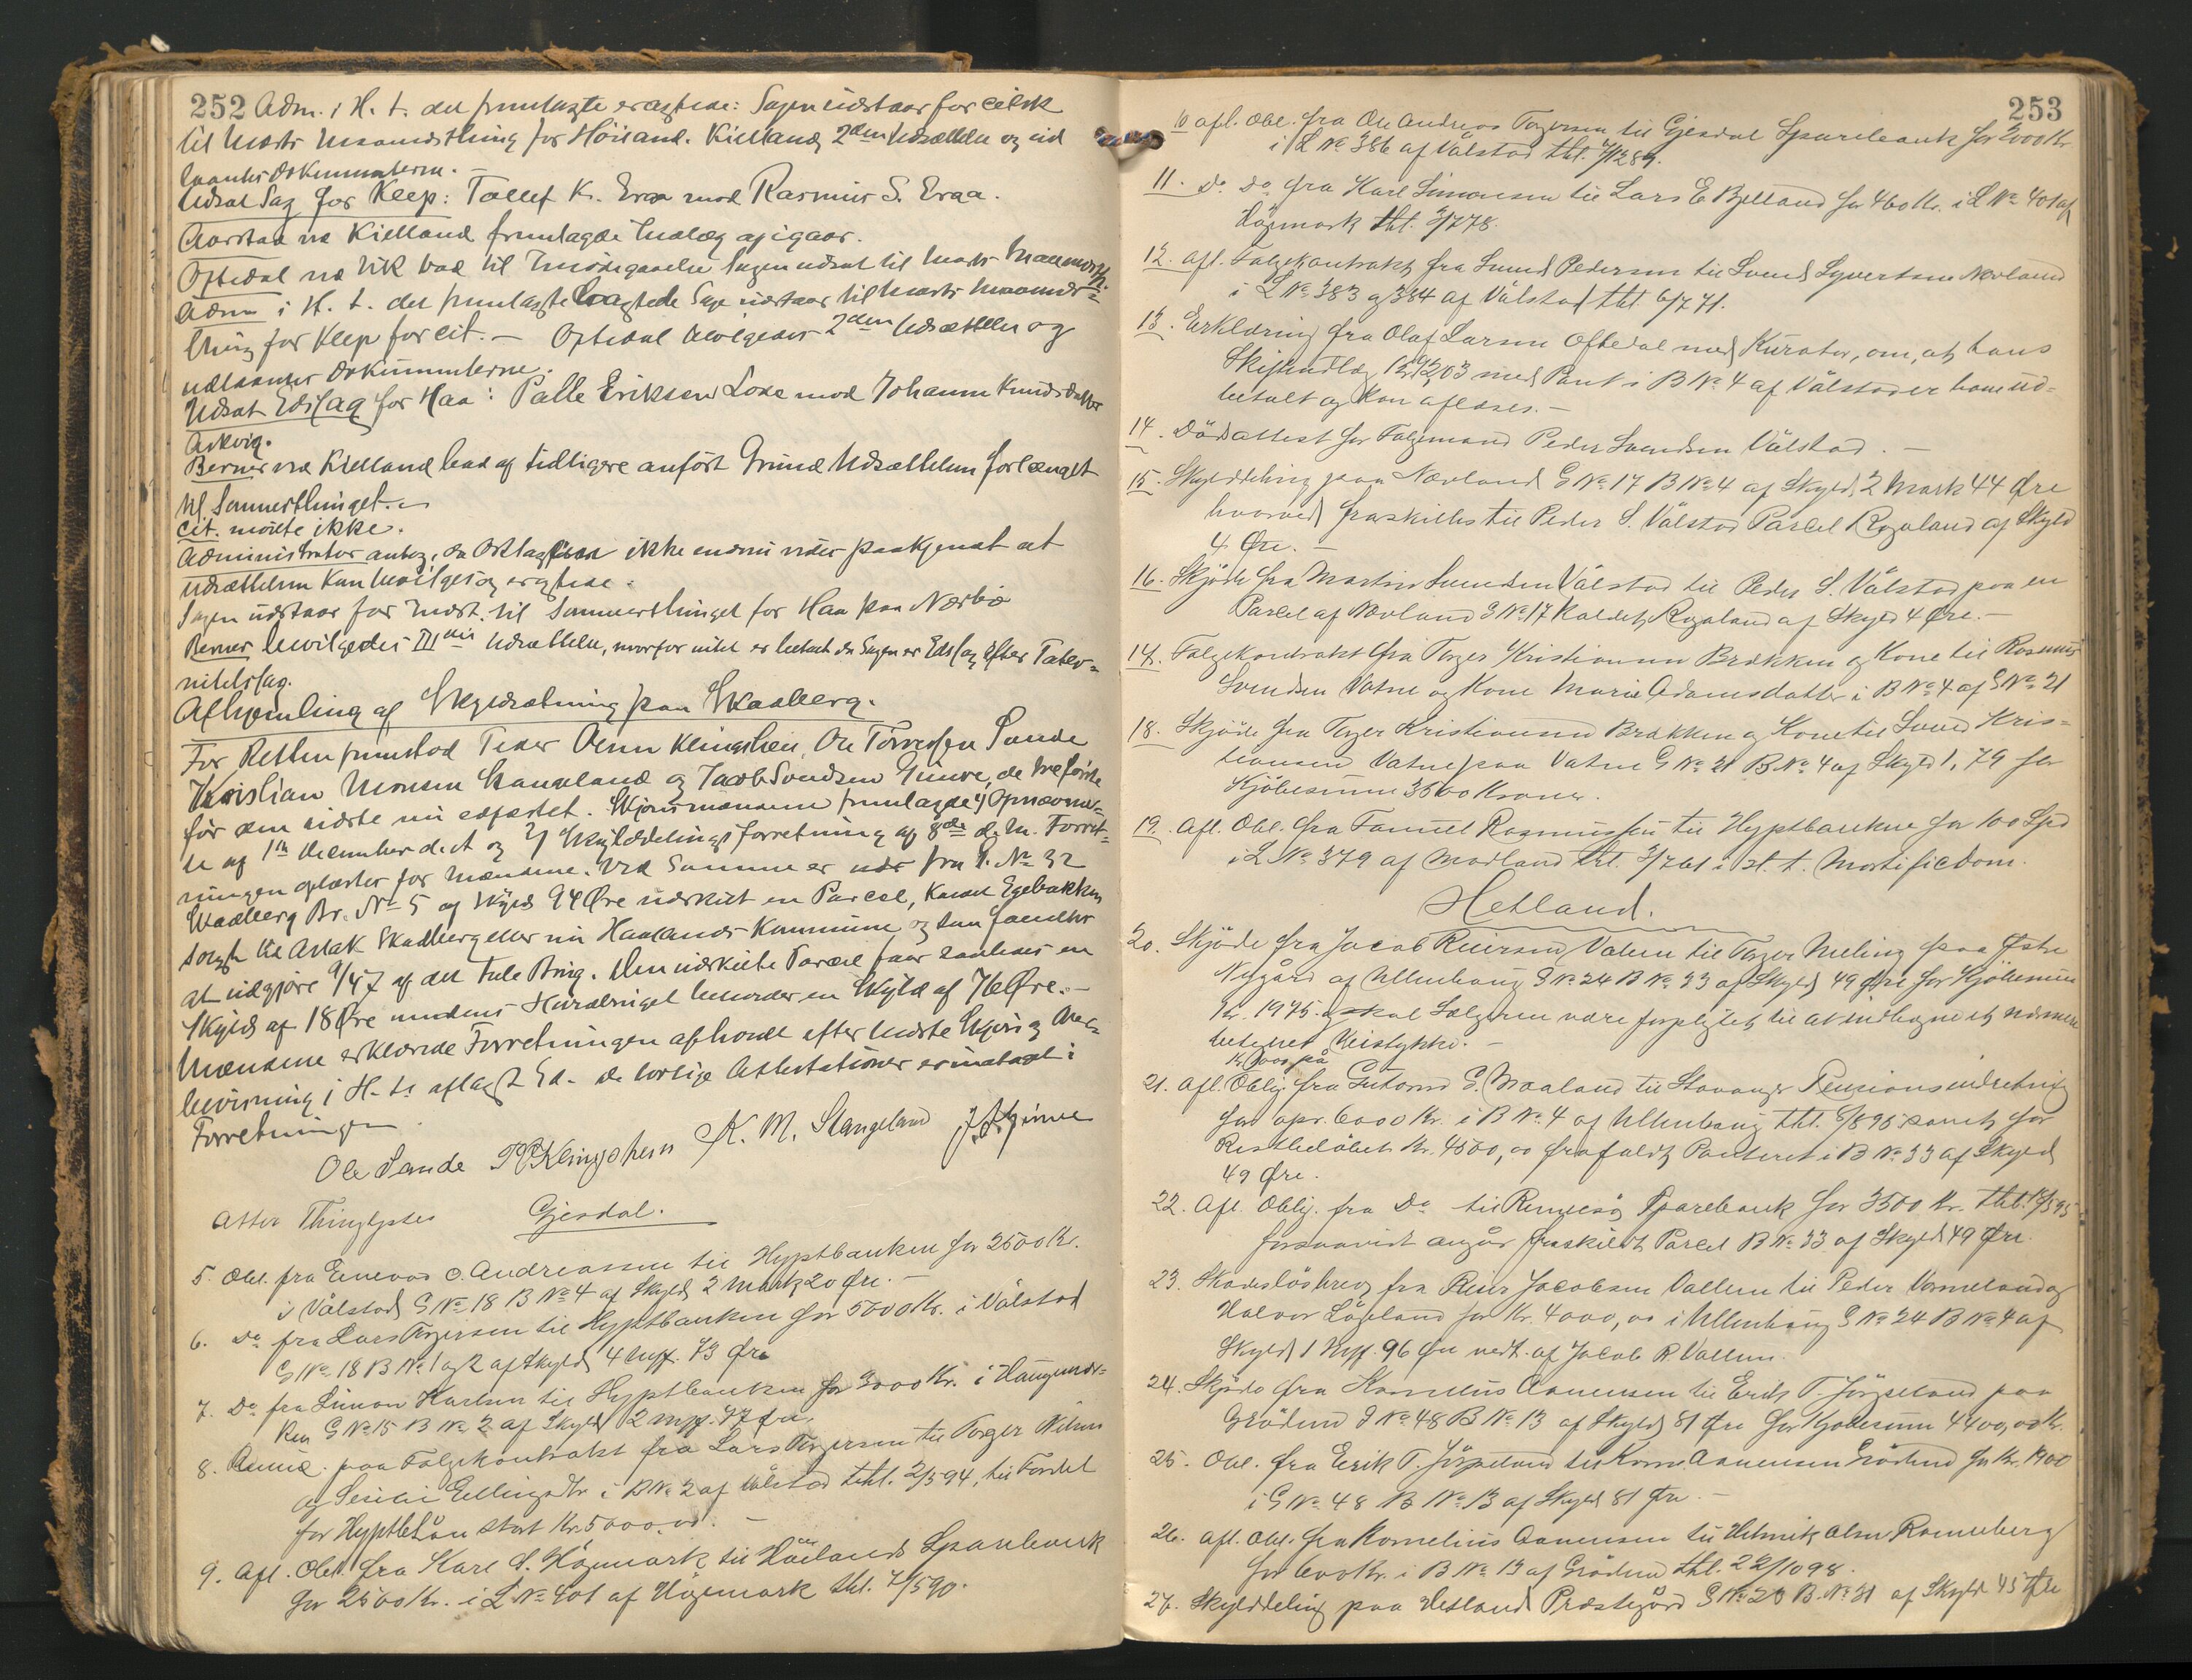 252 Adm. i H. t. det fremlagte eragtede: Sagen udstaar for cit.
til Marts Maanedsthing for Høiland. Kielland 2den Udsættelse og ud
laantes Dokumenterne. -
Udsat Sag for Klep: Tollef K. Eraa mod Rasmus S. Eraa.
Aarstad ve Kielland fremlagde Indlæg af igaar.
Oftedal ve Vik bad til Imødegaaelse Sagen udsat til Marts Maanedsth.
Adm i H. t. det fremlagte eragtede Sagen udstaar til Marts Maaneds=
thing for Klep for cit. - Oftedal bevilgedes 2den Udsættelse og
udlaantes Dokumenterne.
Udsat Edsag for Haa: Palle Eriksen Lode mod Johanne Knudsdatter
Askvig.
Berner ved Kielland bad af tidligere anført Grund Udsættelsen forlænget
til Sommerthinget. -
Cit. mødte ikke.
Administrator antog, da ikke endnu vides paakjendt at
Udsættelsen kan bevilges og eragtede:
Sagen udstaar for Indst. til Sommerthinget for Haa paa Nærbø
Berner bevilgedes IIIdie Udsættelse, hvorfor intet er betalt da Sagen er Edsag efter Tater=
Afhjemling af Skyldsætning paa Skadberg.
For Retten fremstod Peder Olsen Klingsheim, Ole Torresen Sande
Kristian Monsen Stangeland og Jacob Svendsen Gimre, de tre første
før den sidste nu edfæstet. Skjønsmændene fremlagde 1) Opnævnel=
se af 1ste December d. A og 2) Skylddelingsforretning af 8de d. M. Forret=
ningen oplæstes for Mændene. Ved Samme er der fra G. No 32
Skadberg Br. No 5 af Skyld 94 Øre udskilt en Parcel, kaldet Egebakken
solgt til Aslak Skadberg eller nu Haalands Kommune og den fandtes
at udgjøre 9/47 af det hele Brug. Den udskilte Parcel faar saaledes en
Skyld af 18 Øre medens Hovedbruget beholder en Skyld af 76 Øre. -
Mændene erklærede Forretningen afholdt efter bedste Skjøn og Over=
bevisning i H. t. aflagt Ed. De lovlige Attestationer er indtaget i
Forretningen
Ole Sande P O Klingsheim K. M. Stangeland J. S. Gimre
Atter Thinglystes Gjesdal.
5. Obl. fra Enevald O. Andreassen til Hyptbanken for 2500 Kr.
i Vålstad G No 18 B No 4 af Skyld 2 Mark 20 Øre. -
6. Do fra Lars Torgersen til Hyptbanken for 5000 Kr. i Vålstad
G No 18 B No 1 og 2 af Skyld 4 Mrk. 73 Øre
7. Do fra Simon Karlsen til Hyptbanken for 3000 Kr. i Haugmar=
ken G No 15 B No 2 af Skyld 2 Mrk. 47 Øre.
8. paa Følgekontrakt fra Lars Torgersen til Torger Nilsen
og Serine Ellingsdtr i B No 2 af Vålstad thl. 2/5 94, til Fordel
for Hyptlån stort Kr. 5000,00. -
9. Afl. Obl. fra Karl S. Högmark til Hålands Sparebank
for 2500 Kr. i L No 401 af Högemark thl. 7/5 90.
253
10 afl. Obl. fra Ole Andreas Torgersen til Gjesdal Sparebank for 2000 Kr.
i L No 386 af Vålstad thl. 4/12 89.
11. Do Do fra Karl Simonsen til Lars E Bjelland for 460 Kr. i L No 401 af
Högmark thl. 2/7 78.
12. afl. Følgekontrakt fra Svend Pedersen til Svend Syvertsen Nævland
i L No 383 og 384 af Vålstad thl. 6/7 71.
13. Erklæring fra Olaf Larsen Oftedal med Kurator, om, at hans
Skifteudlæg 12/12 03 med Pant i B No 4 af Vålstad er ham ud=
betalt og kan aflæses. -
14. Dödsattest for Følgemand Peder Svendsen Vålstad. -
15. Skylddeling paa Nævland G No 17 B No 4 af Skyld 2 Mark 44 Øre
hvorved fraskilles til Peder S. Vålstad Parcel Rogaland af Skyld
4 Øre. -
16. Skjöde fra Martin Svendsen Vålstad til Peder S. Vålstad paa en
Parcel af Nævland G No 17 kaldet Rogaland af Skyld 4 Øre. -
17. Følgekontrakt fra Torger Kristiansen Brækken og Kone til Rasmus
Svendsen Vatne og Kone Marie Adamsdatter i B No 4 af G No 21
18. Skjöde fra Torger Kristiansen Brækken og Kone til Svend Kris=
tiansen Vatne paa Vatne G No 21 B No 4 af Skyld 1,79 for
Kjöbesum 3500 Kroner.
19. Afl. Obl. fra Samuel Rasmussen til Hyptbanken for 100 Spd
i L No 379 af Madland thl. 3/7 61 i H. t. Mortificdom.
Hetland.
20. Skjöde fra Jacob Reiersen Valen til Torger Meling paa Østre
Nygård af Ullenhaug G No 24 B No 33 af Skyld 49 Øre for Kjöbesum
Kr. 1975. og skal Sælgeren være forpligtet til at indhegne et nærmere
betegnet Veistykke. -
21. Afl. Oblig. fra Gutorm G. Maaland til Stavanger Pensionsindretning
for opr. 6000 Kr. i B No 4 af Ullenhaug thl. 6/8 95 samt for
Restbelöbet Kr. 4500,00 frafaldt Panteret i B No 33 af Skyld
49 Øre.
22. Afl. Oblig. fra Do til Rennesø Sparebank for 3500 Kr. thl.
forsaavidt angår fraskilt Parcel B No 33 af Skyld 49 Øre.
23. Skadeslösbrev fra Reier Jacobsen Vallem til Peder Varmeland og
Halvor Lögeland for Kr. 4000,00 i Ullenhaug G No 24 B No 4 af
Skyld 1 Mrk. 96 Øre vedt. af Jacob R. Vallem.
24. Skjöde fra Kornelius Aanensen til Erik T. Jörpeland paa
Grödem G No 48 B No 13 af Skyld 81 Øre for Kjöbesum 4400,00 Kr.
25. Obl. fra Erik T. Jörpeland til Korn. Aanensen Grödem for Kr. 1900
i G No 48 B No 13 af Skyld 81 Øre -
26. Afl. Obl. fra Kornelius Aanensen til Helmik Olsen Ramneberg
for 600 Kr. i B No 13 af Grödem thl. 22/10 98.
27. Skylddeling paa Hetland Præstegård G No 20 B No 31 af Skyld 45 Øre